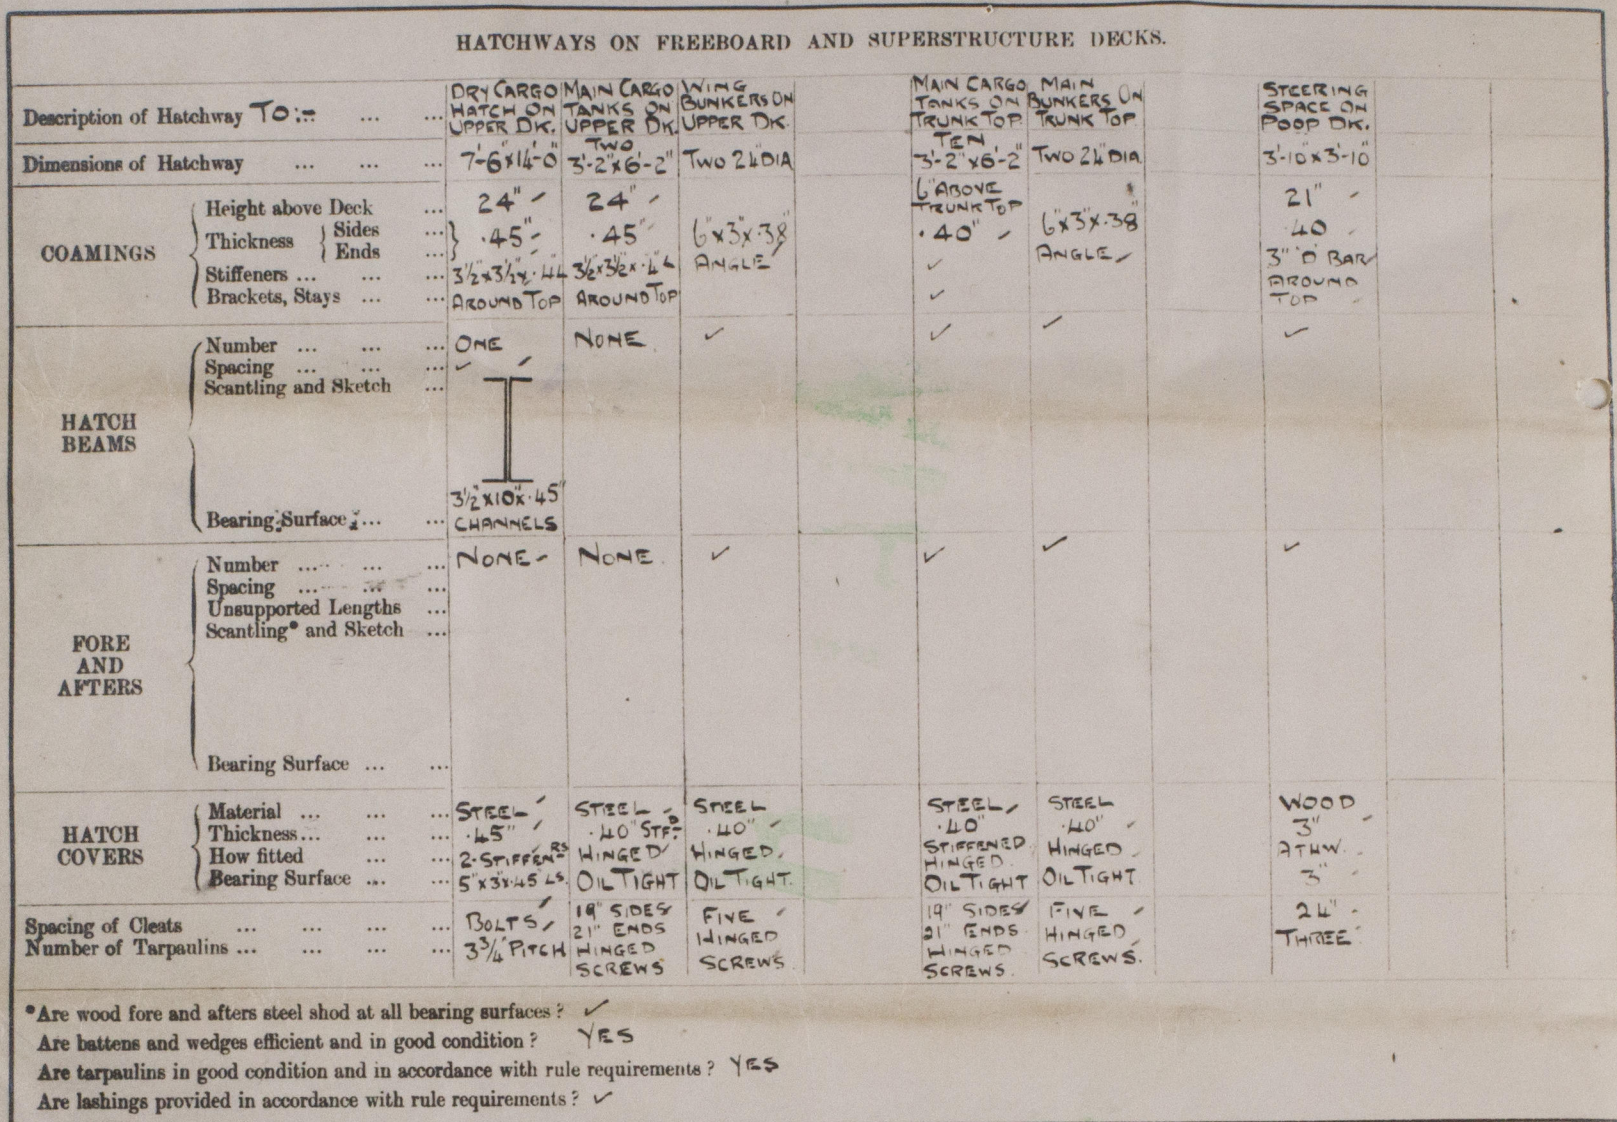 HATCHWAYS ON FREEBOARD AND SUPERSTRUCTURE DECKS.
Description of Hatchway TO:- ... ... DRY CARGO HATCH ON UPPER DK. MAIN CARGO TANKS ON UPPER DK. WING BUNKERS ON UPPER DK. MAIN CARGO TANKS ON TRUNK TOP. MAIN BUNKERS ON TRUNK TOP STEERING SPACE ON POOP DK.
Dimensions of Hatchway ... ... ... 7'-6"x14'-0" TWO 3'-2"x6'-2" TWO 24" DIA TEN 3'-2"x6'-2" TWO 24" DIA. 3'-10"x3'-10"
COAMINGS
Height above Deck ... 24" 24" 6" ABOVE TRUNK TOP 21"
Thickness Sides ... Ends ... .45" .45" 6"x3"x.38" ANGLE .40" 6"x3"x.38" ANGLE .40
Stiffeners ... ... ... 3½"x3½"x.44 3½"x3½"x.4L ✓ 3" 'D' BAR AROUND TOP
Brackets, Stays ... ... AROUND TOP AROUND TOP ✓
HATCH BEAMS
Number ... ... ... ONE NONE. ✓ ✓ ✓ ✓
Spacing ... ... ... ✓
Scantling and Sketch ...
3½"x10"x.45"
Bearing Surface ... ... CHANNELS
FORE AND AFTERS
Number ... ... ... NONE NONE. ✓ ✓ ✓ ✓
Spacing ... ... ...
Unsupported Lengths ...
Scantling* and Sketch ...
Bearing Surface ... ...
HATCH COVERS
Material ... ... ... STEEL STEEL STEEL STEEL STEEL WOOD
Thickness... ... ... .45" .40" STFD .40" .40" .40" 3"
How fitted ... ... 2. STIFFENRS HINGED HINGED. STIFFENED HINGED. HINGED. ATHW.
Bearing Surface ... ... 5"x3"x.45 LS. OIL TIGHT OIL TIGHT. OIL TIGHT OIL TIGHT. 3"
Spacing of Cleats ... ... ... BOLTS 19" SIDES 21" ENDS HINGED SCREWS FIVE HINGED SCREWS. 19" SIDES 21" ENDS HINGED SCREWS. FIVE HINGED SCREWS. 24"
Number of Tarpaulins ... ... ... 3¾" PITCH THREE
*Are wood fore and afters steel shod at all bearing surfaces? ✓
Are battens and wedges efficient and in good condition? YES
Are tarpaulins in good condition and in accordance with rule requirements? YES
Are lashings provided in accordance with rule requirements? ✓